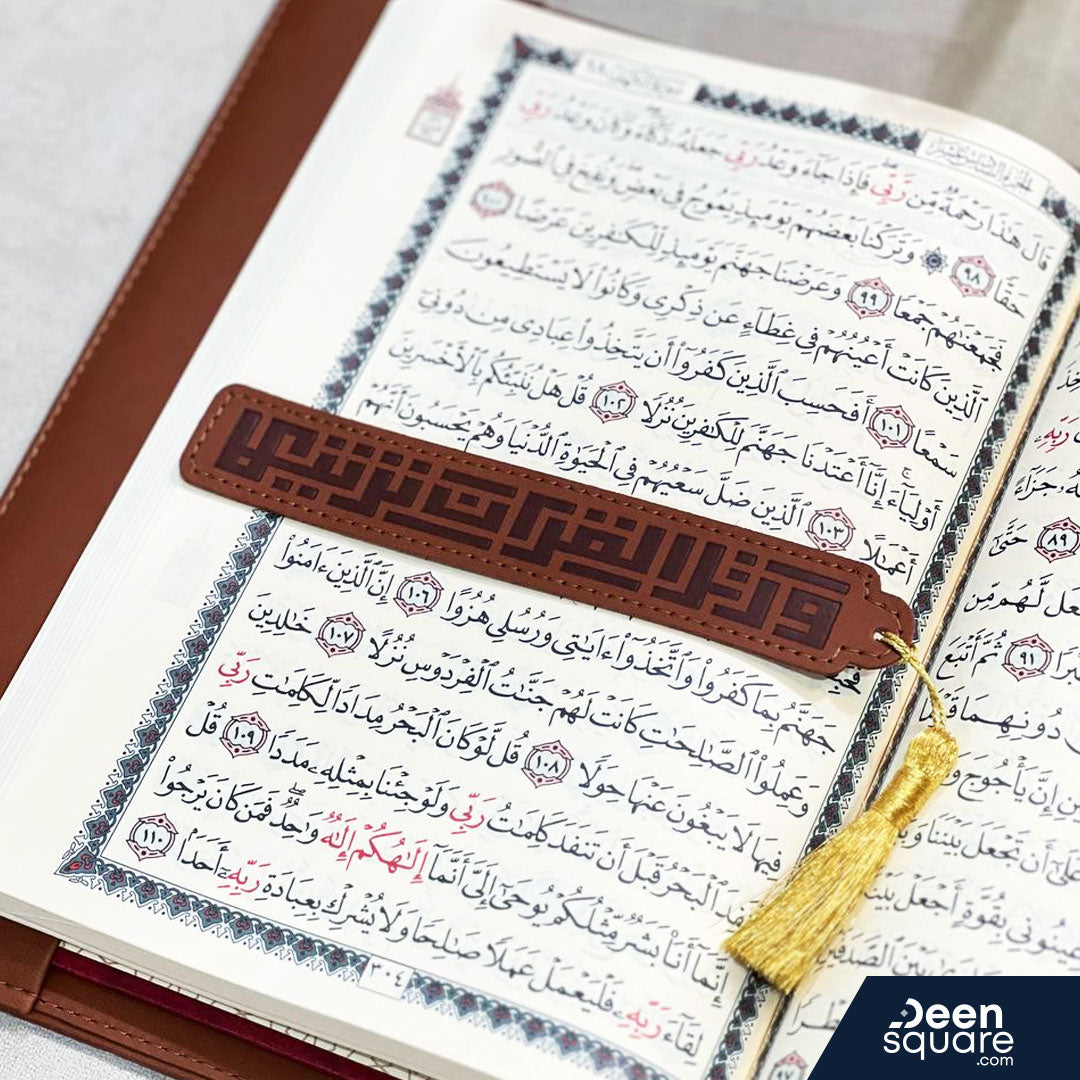 الجزء السادس عشر
سورة الكهف ١٨
قَالَ هَٰذَا رَحْمَةٌ مِّن رَّبِّي ۖ فَإِذَا جَآءَ وَعْدُ رَبِّي جَعَلَهُۥ دَكَّآءَ ۖ وَكَانَ وَعْدُ رَبِّي
حَقًّا ٩٨ ۞ وَتَرَكْنَا بَعْضَهُمْ يَوْمَئِذٍ يَمُوجُ فِي بَعْضٍ ۖ وَنُفِخَ فِي ٱلصُّورِ
فَجَمَعْنَٰهُمْ جَمْعًا ٩٩ وَعَرَضْنَا جَهَنَّمَ يَوْمَئِذٍ لِّلْكَٰفِرِينَ عَرْضًا ١٠٠
ٱلَّذِينَ كَانَتْ أَعْيُنُهُمْ فِي غِطَآءٍ عَن ذِكْرِي وَكَانُوا۟ لَا يَسْتَطِيعُونَ
سَمْعًا ١٠١ أَفَحَسِبَ ٱلَّذِينَ كَفَرُوٓا۟ أَن يَتَّخِذُوا۟ عِبَادِي مِن دُونِيٓ
أَوْلِيَآءَ ۚ إِنَّآ أَعْتَدْنَا جَهَنَّمَ لِلْكَٰفِرِينَ نُزُلًا ١٠٢ قُلْ هَلْ نُنَبِّئُكُم بِٱلْأَخْسَرِينَ
أَعْمَٰلًا ١٠٣ ٱلَّذِينَ ضَلَّ سَعْيُهُمْ فِي ٱلْحَيَوٰةِ ٱلدُّنْيَا وَهُمْ يَحْسَبُونَ أَنَّهُمْ
ورتل القرآن ترتيلا
جَهَنَّمُ بِمَا كَفَرُوا۟ وَٱتَّخَذُوٓا۟ ءَايَٰتِي وَرُسُلِي هُزُوًا ١٠٦ إِنَّ ٱلَّذِينَ ءَامَنُوا۟
وَعَمِلُوا۟ ٱلصَّٰلِحَٰتِ كَانَتْ لَهُمْ جَنَّٰتُ ٱلْفِرْدَوْسِ نُزُلًا ١٠٧ خَٰلِدِينَ
فِيهَا لَا يَبْغُونَ عَنْهَا حِوَلًا ١٠٨ قُل لَّوْ كَانَ ٱلْبَحْرُ مِدَادًا لِّكَلِمَٰتِ رَبِّي
لَنَفِدَ ٱلْبَحْرُ قَبْلَ أَن تَنفَدَ كَلِمَٰتُ رَبِّي وَلَوْ جِئْنَا بِمِثْلِهِۦ مَدَدًا ١٠٩ قُلْ
إِنَّمَآ أَنَا۠ بَشَرٌ مِّثْلُكُمْ يُوحَىٰٓ إِلَيَّ أَنَّمَآ إِلَٰهُكُمْ إِلَٰهٌ وَٰحِدٌ ۖ فَمَن كَانَ يَرْجُوا۟
لِقَآءَ رَبِّهِۦ فَلْيَعْمَلْ عَمَلًا صَٰلِحًا وَلَا يُشْرِكْ بِعِبَادَةِ رَبِّهِۦٓ أَحَدًۢا ١١٠
٣٠٤
جَزَآءً
٨٩ حَتَّىٰٓ
لَّهُم مِّن
٩١ ثُمَّ أَتْبَعَ
دُونِهِمَا
إِنَّ يَأْجُوجَ
عَلَىٰٓ أَن تَجْعَلَ بَيْنَنَا
بِقُوَّةٍ أَجْعَلْ
بَيْنَ ٱلصَّدَفَيْنِ
٩٧
Deen
square
.com